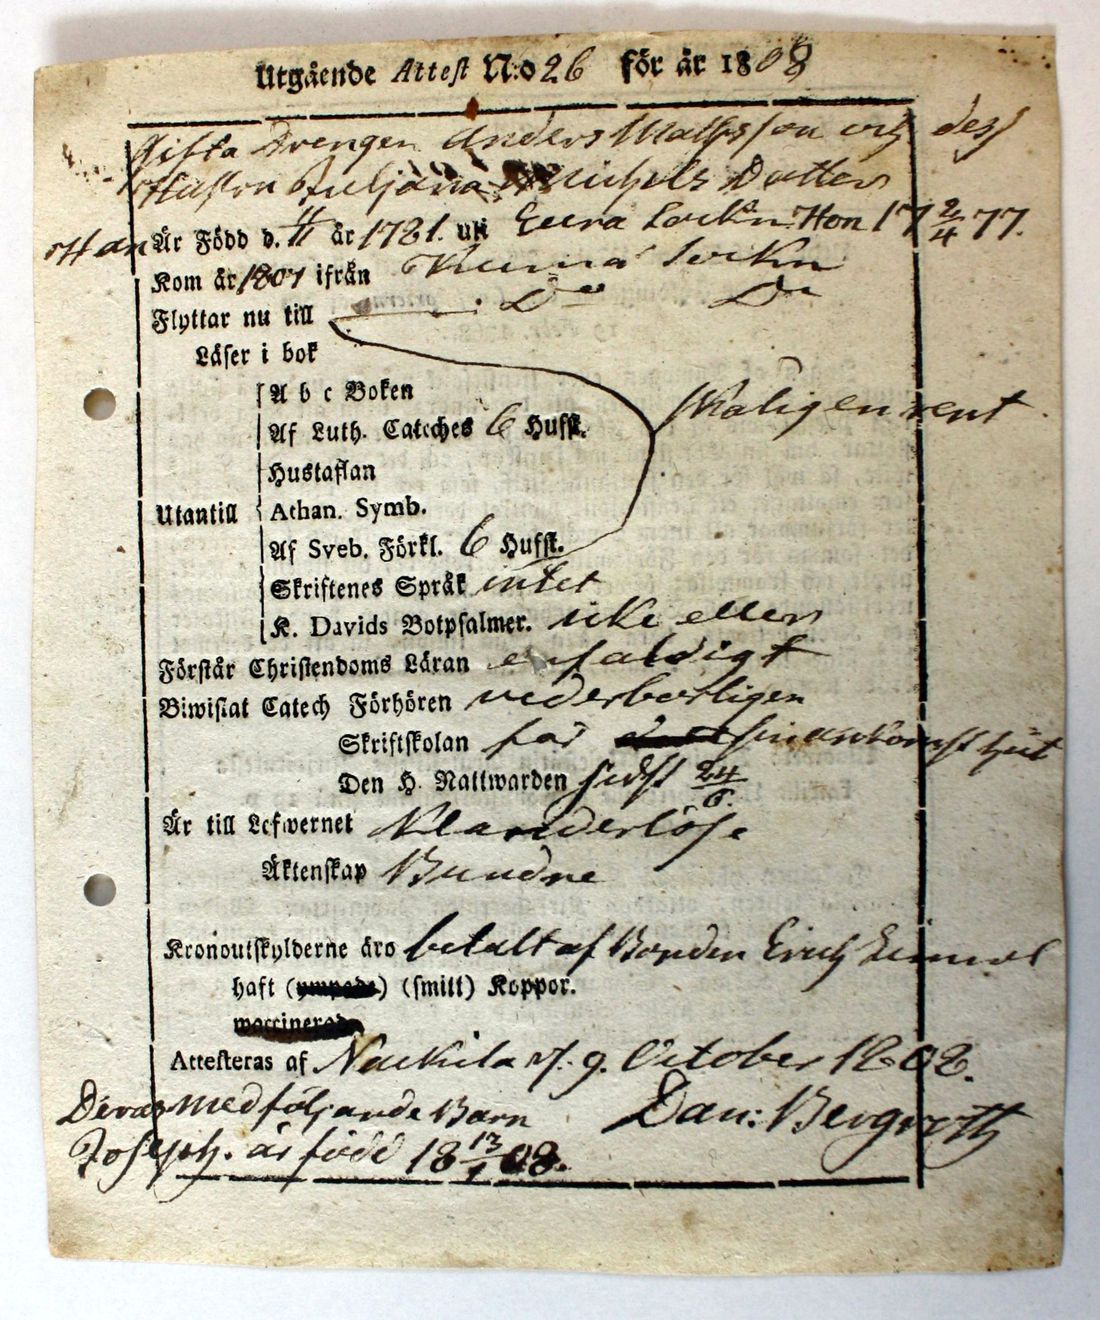 Utgående Attest N:o 26 för år 1808
Gifta Drengen Anders Matsson och dess
Hustru Juljana Michels Dotter
Han Är Född d. år 1781. uti Eura Sockn. Hon 17 2/4 77.
Kom år 1807 ifrån Kiuma Sockn
Flyttar nu till Do Do
Läser i bok
A b c Boken
Af Luth. Cateches 6 Hufst. skaligen rent
Hustaflan
Utantill Athan. Symb.
Af Sveb. Förkl. 6 Hufst.
Skriftenes Språk intet
K. Davids Botpsalmer. icke eller
Förstår Christendoms Läran enfaldigt
Biwistat Catech Förhören vederbörligen
Skriftskolan för sin ankomst hit
Den H. Nattwarden sidst 24/6.
Är till Lefwernet Klanderlöse
Äktenskap Bundne
Kronoutskylderne äro betalt af Bonden Erich
haft (ympade) (smitt) Koppor.
vaccinerade
Attesteras af Nackila d. 9. October 1808.
Deras medföljande Barn Dan: Bergroth
Joseph. är född 18 13/1 08.